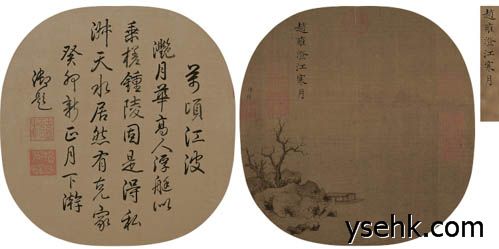 萬頃江波
灔月華高人浮艇似
乘槎鍾陵固是得私
淑天水居然有克家
癸卯新正月下澣
御題
趙雍澄江寒月
趙雍澄江寒月
ysehk.com